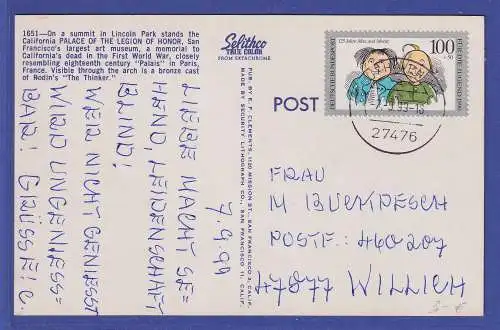 1651—On a summit in Lincoln Park stands the
California PALACE OF THE LEGION OF HONOR, San
Francisco's largest art museum, a memorial to
California's dead in the First World War, closely
resembling eighteenth century "Palais" in Paris,
France. Visible through the arch is a bronze cast
of Rodin's "The Thinker."
Selithco
TRUE COLOR
FROM EKTACHROME
PUB. BY E. F. CLEMENTS, 1120 MISSION ST., SAN FRANCISCO 3, CALIF.
MADE BY SECURITY LITHOGRAPH CO., SAN FRANCISCO 11, CALIF.
POST
125 Jahre Max und Moritz
100
+50
DEUTSCHE BUNDESPOST
FÜR DIE JUGEND 1990
27476
7.9.99
LIEBE MACHT SE=
HEND, LEIDENSCHAFT
BLIND!
WER NICHT GENIESST
WIRD UNGENIESS=
BAR! GRÜSSE! C.
FRAU
M. BUCKPESCH
POSTF.: 460207
47877 WILLICH